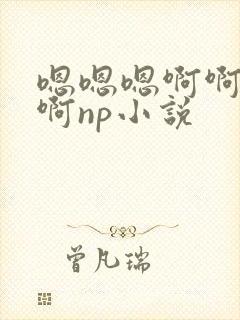 嗯嗯嗯啊啊
啊np小説
曾凡瑞